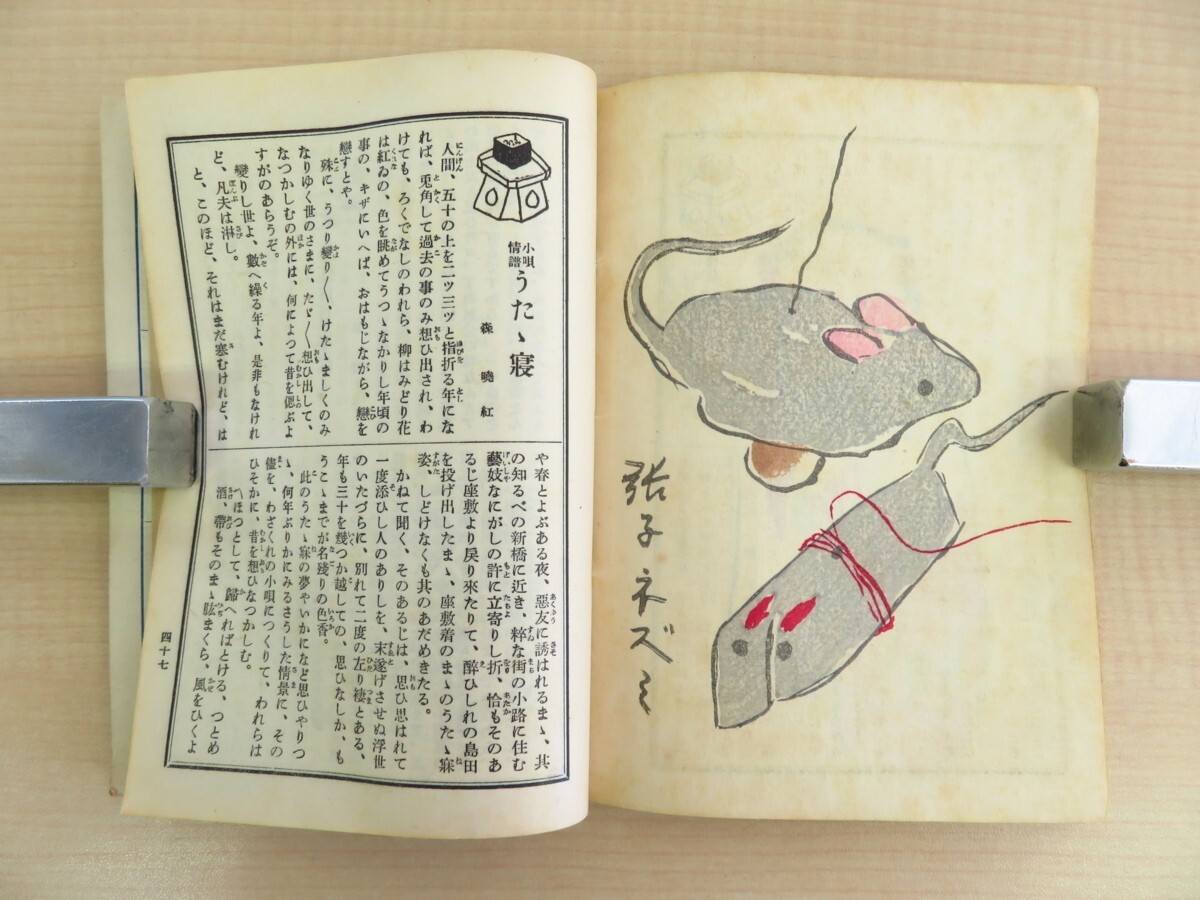 張子ネズミ
小唄情譜 うたゝ寢
森曉紅
人間、五十の上を二ッ三ッと指折る年にな
れば、兎角して過去の事のみ想ひ出され、わ
けても、ろくでなしのわれら、柳はみどり花
は紅ゐの、色を眺めてうつゝなかりし年頃の
事の、キザにいへば、おはもじながら、戀を
戀すとや。
殊に、うつり變り〳〵、けたゝましくのみ
なりゆく世のさまに、たゞ〳〵想ひ出して、
なつかしむの外には、何によつて昔を偲ぶよ
すがのあらうぞ。
變りし世よ、數へ繰る年よ、是非もなけれ
ど、凡夫は淋し。
と、このほど、それはまだ寒むけれど、は
や春とよぶある夜、惡友に誘はれるまゝ、其
の知るべの新橋に近き、粹な街の小路に住む
藝妓なにがしの許に立寄りし折、恰もそのあ
るじ座敷より戻り來たりて、醉ひしれの島田
を投げ出したまゝ、座敷着のまゝのうたゝ寐
姿、しどけなくも其のあだめきたる。
かねて聞く、そのあるじは、思ひ思はれて
一度添ひし人のありしを、末遂げさせぬ浮世
のいたづらに、別れて二度の左り褄とある、
年も三十を幾つか越しての、思ひなしか、も
うこゝまでが名殘りの色香。
此のうたゝ寐の夢やいかになど思ひやりつ
ゝ、何年ぶりかにみるさうした情景に、その
儘を、わざくれの小唄につくりて、われらは
ひそかに、昔を想ひなつかしむ。
〽ほつとして、歸へればとける、つとめ
酒、帶もそのまゝ肱まくら、風をひくよ
四十七